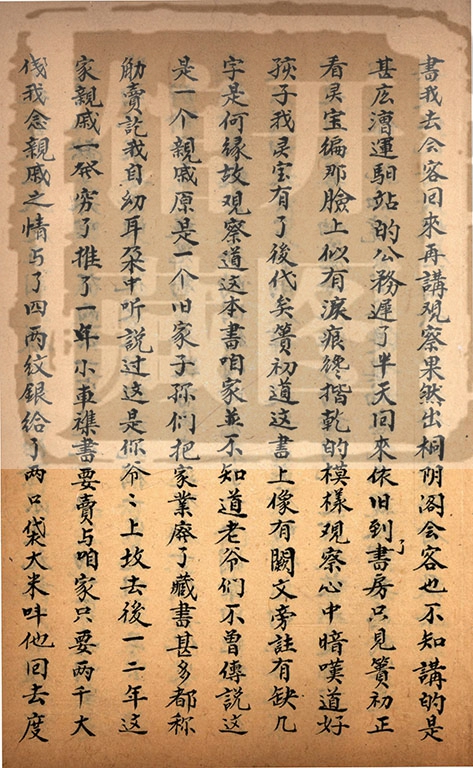 書我去会客回來再講観察果然出桐阴阁会客也不知講的是
甚広漕運馹站的公務遲了半天回來依旧到了書房只見簣初正
看灵宝編那臉上似有淚痕纔揩乾的模樣观察心中暗嘆道好
孩子我灵宝有了後代矣簣初道这書上像有闕文旁註有缺几
字是何緣故观察道这本書咱家並不知道老爷们不曾傳説这
是一个親戚原是一个旧家子孫们把家業廢了藏書甚多都称
觔賣訖我自幼耳朶中听説过这是你爷〻上坟去後一二年这
家親戚一發穷了推了一車小車襍書要賣与咱家只要两千大
錢我念親戚之情与了四两紋銀給了两只袋大米呌他回去度